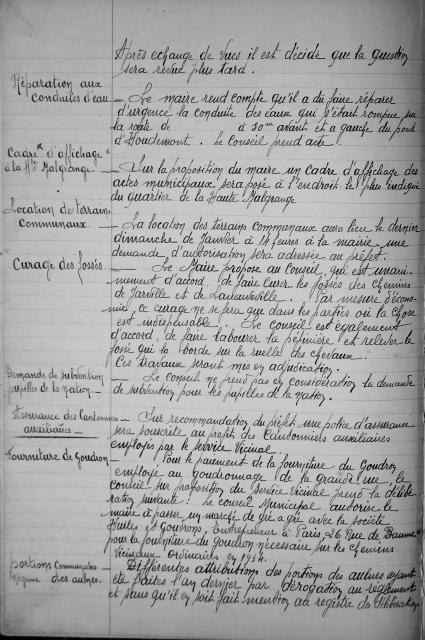 Après echange de vues il est décidé que la question
sera revue plus tard.
Réparation aux
conduites d'eau
— Le maire rend compte qu'il a dû faire réparer
d'urgence la conduite des eaux qui s'était rompue sur
la route de à 50m avant et à gauche du pont
d'Houdemont. Le Conseil prend acte.
Cadre d'affichage
à la Hte Malgrange.
— Sur la proposition du maire un cadre d'affichage des
actes municipaux sera posé à l'endroit le plus indiqué
du quartier de la Haute Malgrange
Location de terrains
communaux.
— La location des terrains communaux aura lieu le dernier
dimanche de Janvier à 14 heures à la mairie, une
demande d'autorisation sera adressée au préfet.
Curage des fossés.
— Le Maire propose au Conseil, qui est unani-
mement d'accord, de faire curer les fossés des chemins
de Jarville et de Laneuveville. Par mesure d'écono-
mies, ce curage ne se fera que dans les parties où la chose
est indispensable. Le conseil est également
d'accord, de faire labourer la pépinière et relever le
fossé qui la borde sur la ruelle des chevaux.
Ces travaux seront mis en adjudication.
Demande de subvention
pupilles de la nation.
— Le Conseil ne prend pas en considération la demande
de subvention pour les pupilles de la nation.
Assurance des Cantonniers
auxiliaires —
— Sur recommandation du préfet une police d'assurance
sera souscrite au profit des Cantonniers auxiliaires
employés par le service Vicinal.
Fourniture de Goudron
— Pour le paiement de la fourniture du Goudron
employé au goudronnage de la grande rue, le
Conseil sur proposition du Service Vicinal prend la délibé-
ration suivante: Le conseil Municipal autorise le
maire à passer un marché de gré à gré avec la société
Huiles et Goudrons, Entrepreneur à Paris, 26 Rue de
pour la fourniture du Goudron nécessaire sur les chemins
Vicinaux Ordinaires en
portions Communales
Régime des aulnes.
— Différentes attributions des portions des aulnes ayant
été faites l'an dernier par dérogation au règlement
et sans qu'il en soit fait mention au registre de délibération